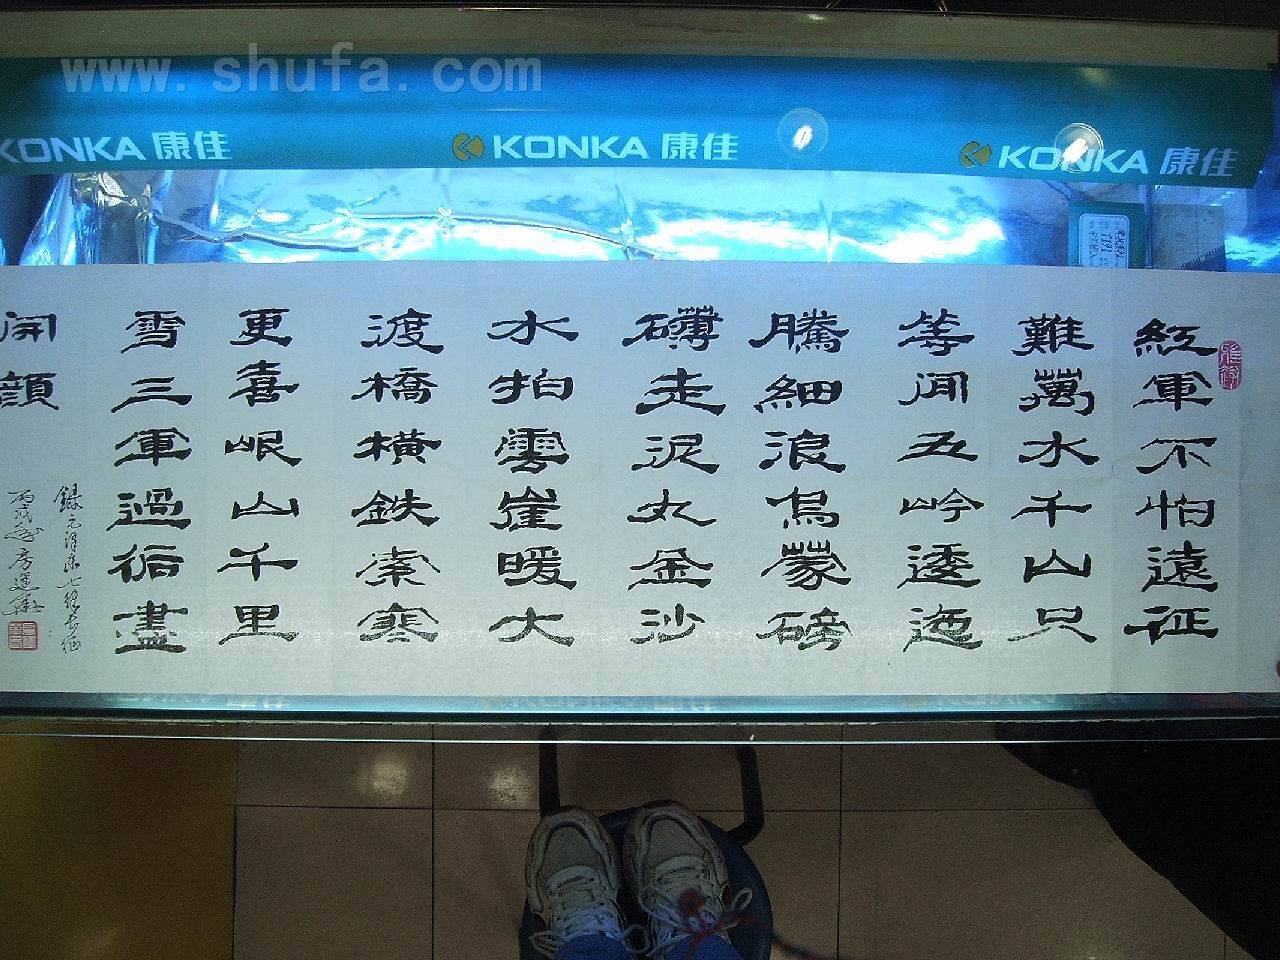 www.shufa.com
KONKA 康佳
KONKA 康佳
KONKA 康佳
紅軍不怕遠征
難萬水千山只
等閒五岭逶迤
騰細浪烏蒙磅
礴走泥丸金沙
水拍雲崖暖大
渡橋橫鉄索寒
更喜岷山千里
雪三軍過後盡
開顏
錄毛澤東七律長征
丙戌